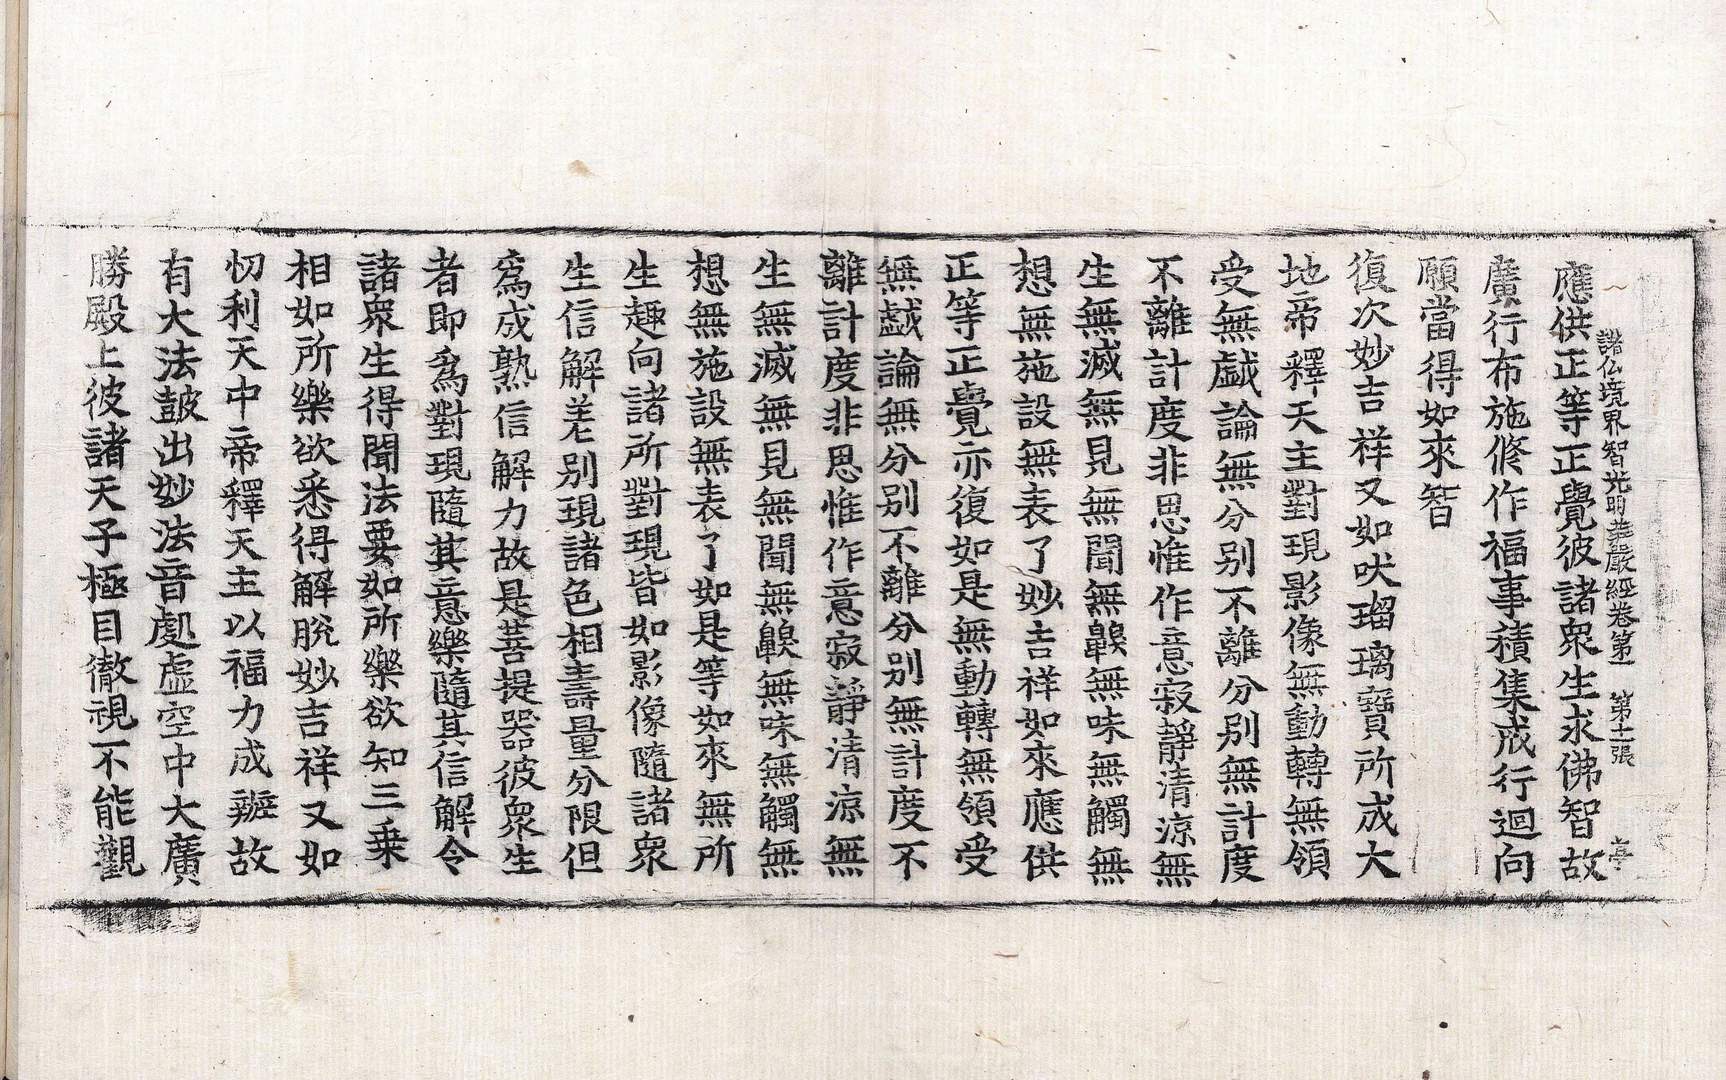 諸仏境界智光明莊嚴經卷第一 第十二張
應供正等正覺彼諸眾生求佛智故
廣行布施修作福事積集戒行迴向
願當得如來智
復次妙吉祥又如吠瑠璃寶所成大
地帝釋天主對現影像無動轉無領
受無戲論無分別不離分別無計度
不離計度非思惟作意寂靜清涼無
生無滅無見無聞無齅無味無觸無
想無施設無表了妙吉祥如來應供
正等正覺亦復如是無動轉無領受
無戲論無分別不離分別無計度不
離計度非思惟作意寂靜清涼無
生無滅無見無聞無齅無味無觸無
想無施設無表了如是等如來無所
生趣向諸所對現皆如影像隨諸眾
生信解差別現諸色相壽量分限但
為成熟信解力故是菩提器彼眾生
者即為對現隨其意樂隨其信解令
諸眾生得聞法要如所樂欲知三乗
相如所樂欲悉得解脫妙吉祥又如
忉利天中帝釋天主以福力成辦故
有大法皷出妙法音處虛空中大廣
勝殿上彼諸天子極目徹視不能觀